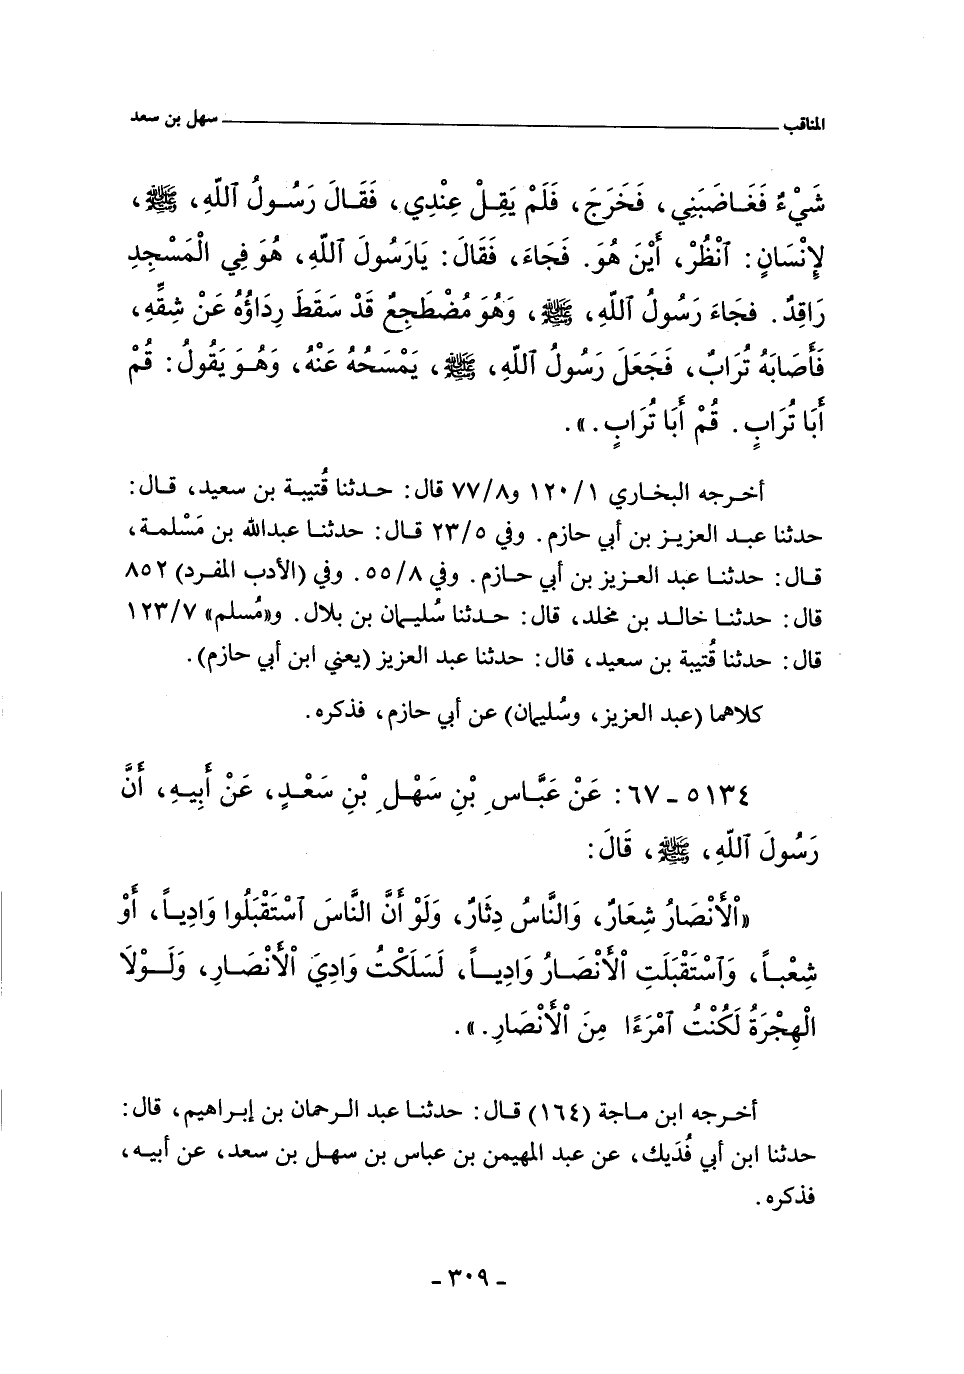 المناقب ـــــــــــ سهل بن سعد
شَيْءٌ فَغَاضَبَنِي، فَخَرَجَ، فَلَمْ يَقِلْ عِنْدِي، فَقَالَ رَسُولُ ٱللّٰهِ، ﷺ،
لِإِنْسَانٍ: ٱنْظُرْ، أَيْنَ هُوَ. فَجَاءَ، فَقَالَ: يَارَسُولَ ٱللّٰهِ، هُوَ فِي الْمَسْجِدِ
رَاقِدٌ. فجَاءَ رَسُولُ ٱللّٰهِ، ﷺ، وَهُوَ مُضْطَجِعٌ قَدْ سَقَطَ رِدَاؤُهُ عَنْ شِقِّهِ،
فَأَصَابَهُ تُرَابٌ، فَجَعَلَ رَسُولُ ٱللّٰهِ، ﷺ، يَمْسَحُهُ عَنْهُ، وَهُوَ يَقُولُ: قُمْ
أَبَا تُرَابٍ. قُمْ أَبَا تُرَابٍ.».
أخرجه البخاري ١/١٢٠ و٨/٧٧ قال: حدثنا قُتيبة بن سعيد، قال:
حدثنا عبد العزيز بن أبي حازم. وفي ٥/٢٣ قال: حدثنا عبدالله بن مَسْلمة،
قال: حدثنا عبد العزيز بن أبي حازم. وفي ٨/٥٥. وفي (الأدب المفرد) ٨٥٢
قال: حدثنا خالد بن مخلد، قال: حدثنا سُليمان بن بلال. و«مُسلم» ٧/١٢٣
قال: حدثنا قُتيبة بن سعيد، قال: حدثنا عبد العزيز (يعني ابن أبي حازم).
كلاهما (عبد العزيز، وسُليمان) عن أبي حازم، فذكره.
٥١٣٤ ـ ٦٧: عَنْ عَبَّاسِ بْنِ سَهْلِ بْنِ سَعْدٍ، عَنْ أَبِيهِ، أَنَّ
رَسُولَ ٱللّٰهِ، ﷺ، قَالَ:
«ٱلْأَنْصَارُ شِعَارٌ، وَالنَّاسُ دِثَارٌ، وَلَوْ أَنَّ النَّاسَ ٱسْتَقْبَلُوا وَادِياً، أَوْ
شِعْباً، وَٱسْتَقْبَلَتِ ٱلْأَنْصَارُ وَادِياً، لَسَلَكْتُ وَادِيَ ٱلْأَنْصَارِ، وَلَوْلَا
الْهِجْرَةُ لَكُنْتُ ٱمْرَءًا مِنَ ٱلْأَنْصَارِ.».
أخرجه ابن ماجة (١٦٤) قال: حدثنا عبد الرحمان بن إبراهيم، قال:
حدثنا ابن أبي فُدَيك، عن عبد المهيمن بن عباس بن سهل بن سعد، عن أبيه،
فذكره.
- ٣٠٩ -